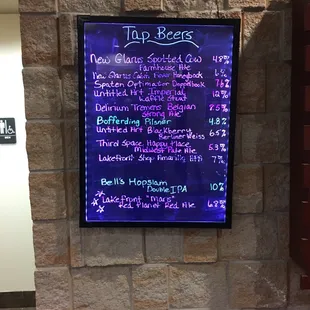 Tap Beers
New Glarus Spotted Cow 4.8%
Farmhouse Ale
New Glarus Cabin Fever Honeybock
Spaten Optimator Doppelbock 7.6%
Untitled Art Imperial
Waffle Stout
Delirium Tremens Belgian 8.5%
Strong Ale
Bofferding Pilsner 4.8%
Untitled Art Blackberry 6.5%
Berliner Weiss
Third Space Happy Place 5.3%
Midwest Pale Ale
Lakefront Shop 7%
Bell's Hopslam 10%
Double IPA
Lakefront "Mars" 6.8%
Red Planet Red Ale